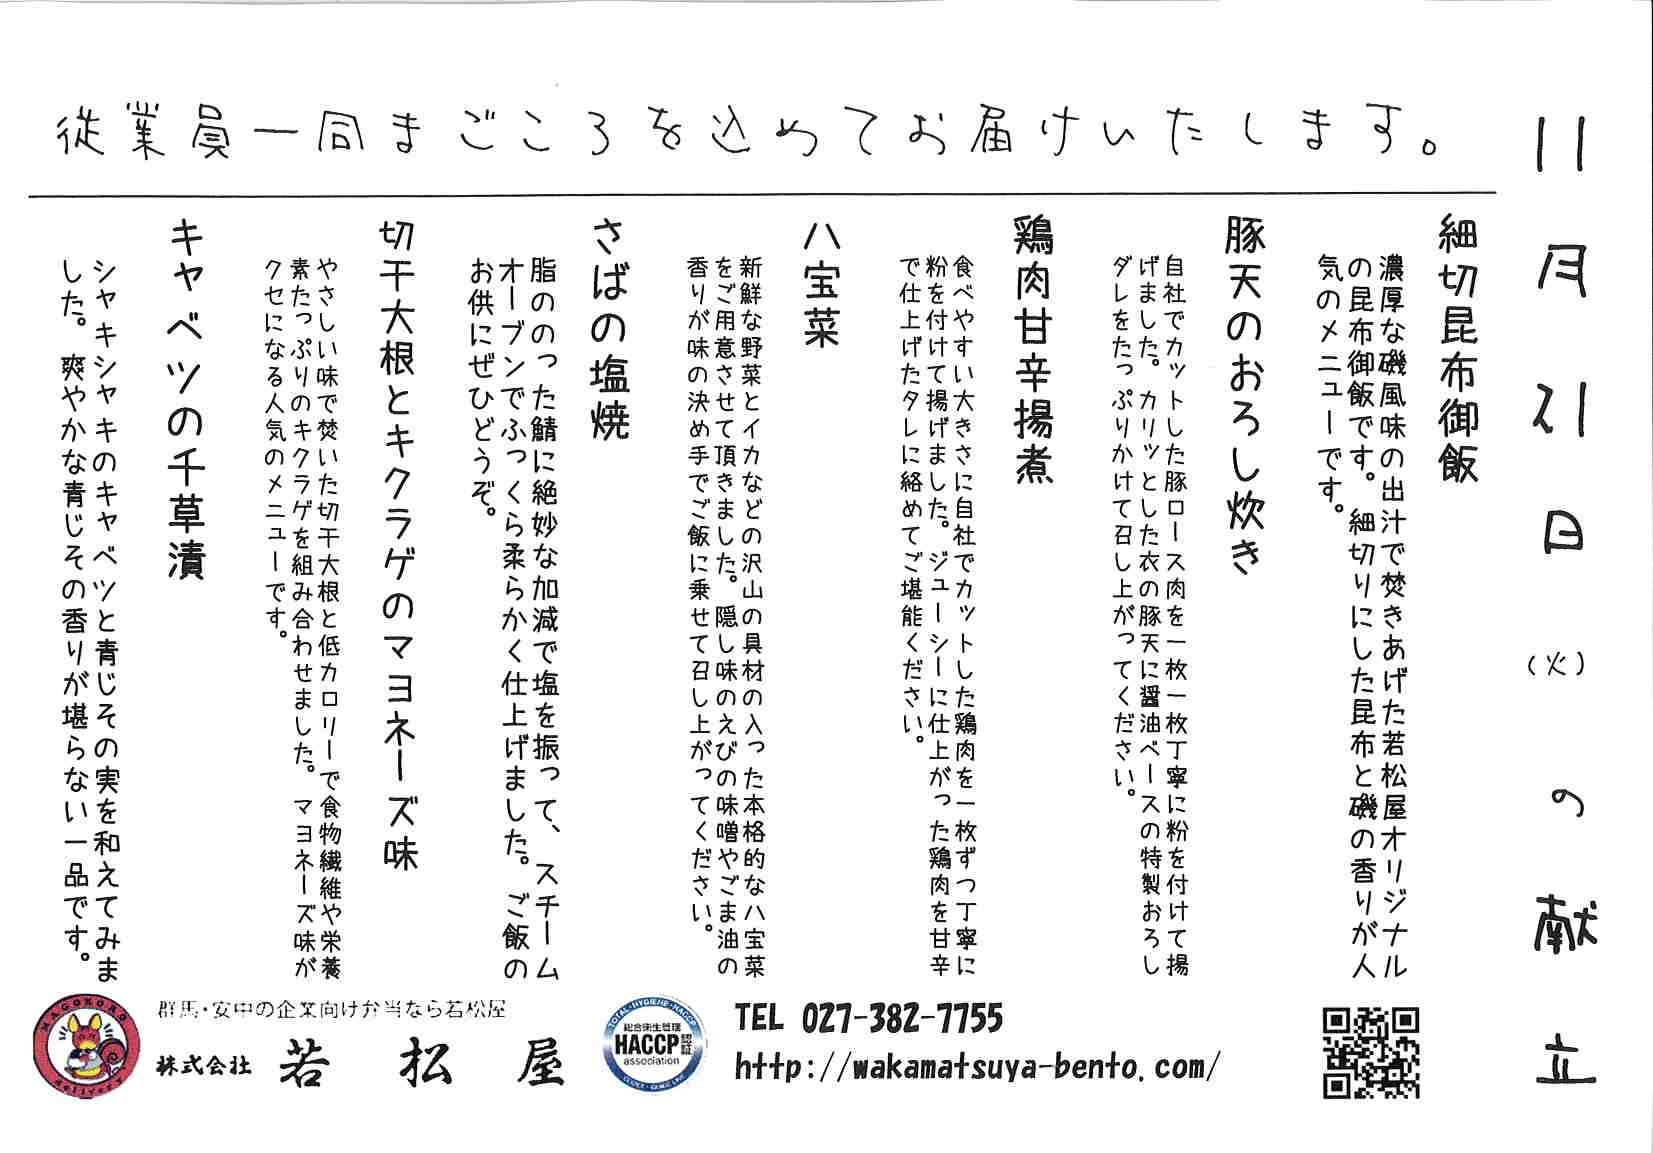 従業員一同まごころを込めてお届けいたします。
11月21日(火)の献立
細切昆布御飯
濃厚な磯風味の出汁で焚きあげた若松屋オリジナル
の昆布御飯です。細切りにした昆布と磯の香りが人
気のメニューです。
豚天のおろし炊き
自社でカットした豚ロース肉を一枚一枚丁寧に粉を付けて揚
げました。カリッとした衣の豚天に醤油ベースの特製おろし
ダレをたっぷりかけて召し上がってください。
鶏肉甘辛揚煮
食べやすい大きさに自社でカットした鶏肉を一枚ずつ丁寧に
粉を付けて揚げました。ジューシーに仕上がった鶏肉を甘辛
で仕上げたタレに絡めてご堪能ください。
八宝菜
新鮮な野菜とイカなどの沢山の具材の入った本格的な八宝菜
をご用意させて頂きました。隠し味のえびの味噌やごま油の
香りが味の決め手でご飯に乗せて召し上がってください。
さばの塩焼
脂ののった鯖に絶妙な加減で塩を振って、スチーム
オーブンでふっくら柔らかく仕上げました。ご飯の
お供にぜひどうぞ。
切干大根とキクラゲのマヨネーズ味
やさしい味で焚いた切干大根と低カロリーで食物繊維や栄養
素たっぷりのキクラゲを組み合わせました。マヨネーズ味が
クセになる人気のメニューです。
キャベツの千草漬
シャキシャキのキャベツと青じその実を和えてみま
した。爽やかな青じその香りが堪らない一品です。
MAGOKORO
delivery
群馬・安中の企業向け弁当なら若松屋
株式会社 若松屋
TOTAL・HYGIENE・HACCP
総合衛生管理
HACCP認証
association
TEL 027-382-7755
http://wakamatsuya-bento.com/